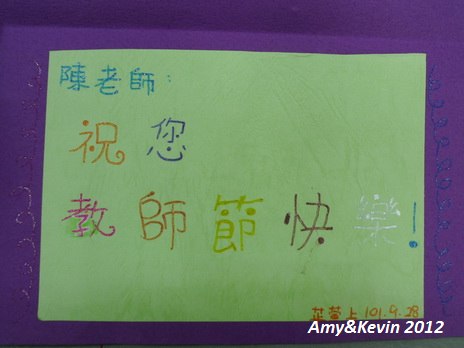 陳老師：
祝您
教師節快樂！
英營上 101.9.28
Amy&Kevin 2012